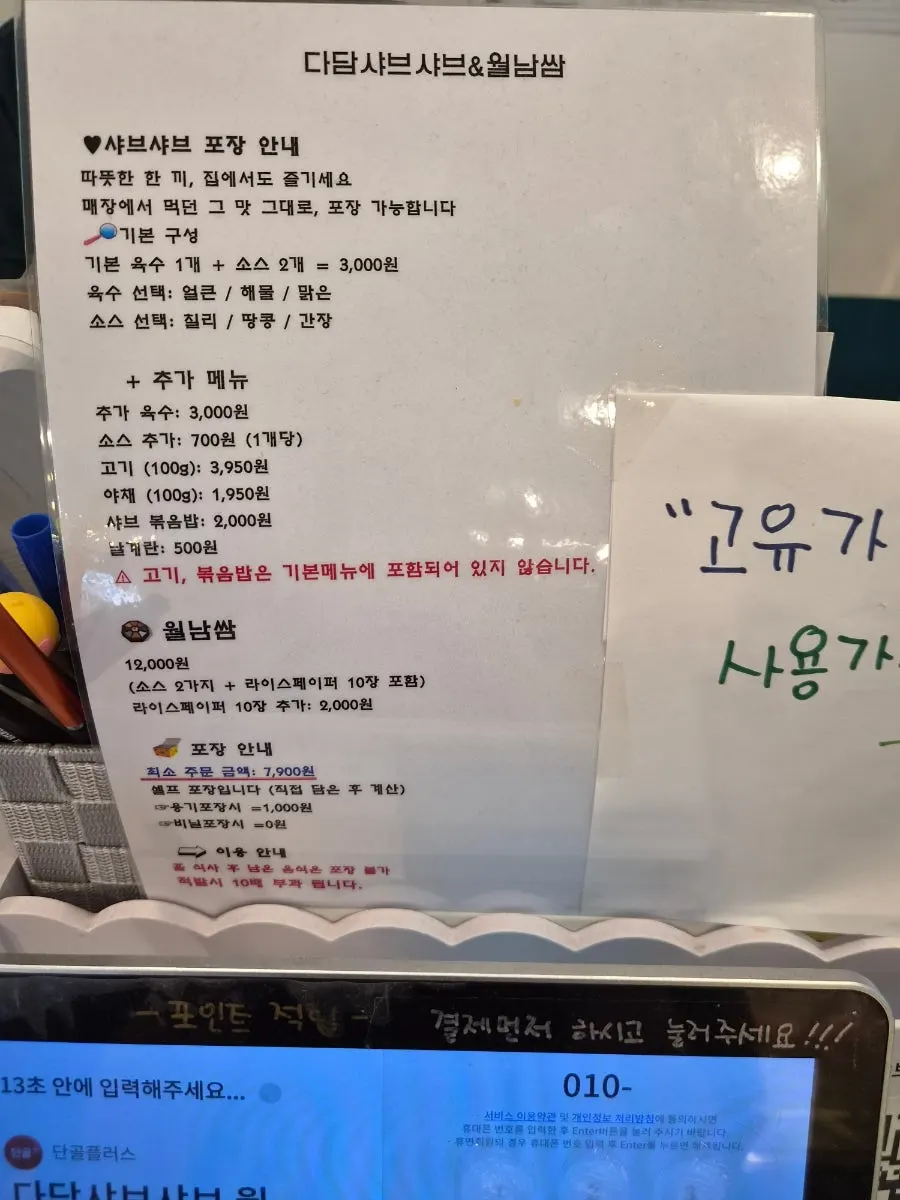 다담샤브샤브&월남쌈
♥샤브샤브 포장 안내
따뜻한 한 끼, 집에서도 즐기세요
매장에서 먹던 그 맛 그대로, 포장 가능합니다
기본 구성
기본 육수 1개 + 소스 2개 = 3,000원
육수 선택: 얼큰 / 해물 / 맑은
소스 선택: 칠리 / 땅콩 / 간장
+ 추가 메뉴
추가 육수: 3,000원
소스 추가: 700원 (1개당)
고기 (100g): 3,950원
야채 (100g): 1,950원
샤브 볶음밥: 2,000원
날계란: 500원
⚠ 고기, 볶음밥은 기본메뉴에 포함되어 있지 않습니다.
월남쌈
12,000원
(소스 2가지 + 라이스페이퍼 10장 포함)
라이스페이퍼 10장 추가: 2,000원
포장 안내
최소 주문 금액: 7,900원
셀프 포장입니다 (직접 담은 후 계산)
☞용기포장시 =1,000원
☞비닐포장시 =0원
⇨ 이용 안내
식사 후 남은 음식은 포장 불가
적발시 10배 부과 됩니다.
"고유가
사용가
- 포인트 적립 -
결제먼저 하시고 눌러주세요!!!
13초 안에 입력해주세요...
010-
서비스 이용약관 및 개인정보 처리방침에 동의하시면
휴대폰 번호를 입력한 후 Enter버튼을 눌러 주시기 바랍니다.
휴면회원의 경우 휴대폰 번호 입력 후 Enter를 누르면 해제됩니다.
단골+
단골플러스
다담샤브샤브 월